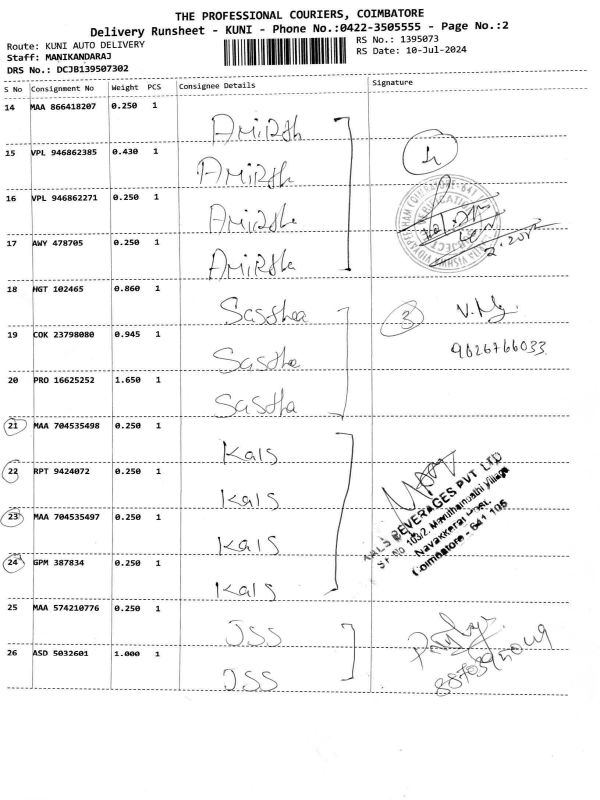 THE PROFESSIONAL COURIERS, COIMBATORE
Delivery Runsheet - KUNI - Phone No.:0422-3505555 - Page No.:2
Route: KUNI AUTO DELIVERY
RS No.: 1395073
Staff: MANIKANDARAJ
RS Date: 10-Jul-2024
DRS No.: DCJB139507302
S No Consignment No Weight PCS Consignee Details Signature
14 MAA 866418207 0.250 1 Amirtha
15 VPL 946862385 0.430 1 Amirtha
4
16 VPL 946862271 0.250 1 Amirtha
17 AWY 478705 0.250 1 Amirtha
18 MGT 102465 0.860 1 Sastha
3
19 COK 23798080 0.945 1 Sastha
20 PRO 16625252 1.650 1 Sastha
21 MAA 704535498 0.250 1 Kals
22 RPT 9424072 0.250 1 Kals
23 MAA 704535497 0.250 1 Kals
24 GPM 387834 0.250 1 Kals
KALS BEVERAGES PVT LTD
1032, Mavuthampathi Village
Navakkarai Post,
Coimbatore - 641 105
25 MAA 574210776 0.250 1 JSS
26 ASD 5032601 1.000 1 JSS